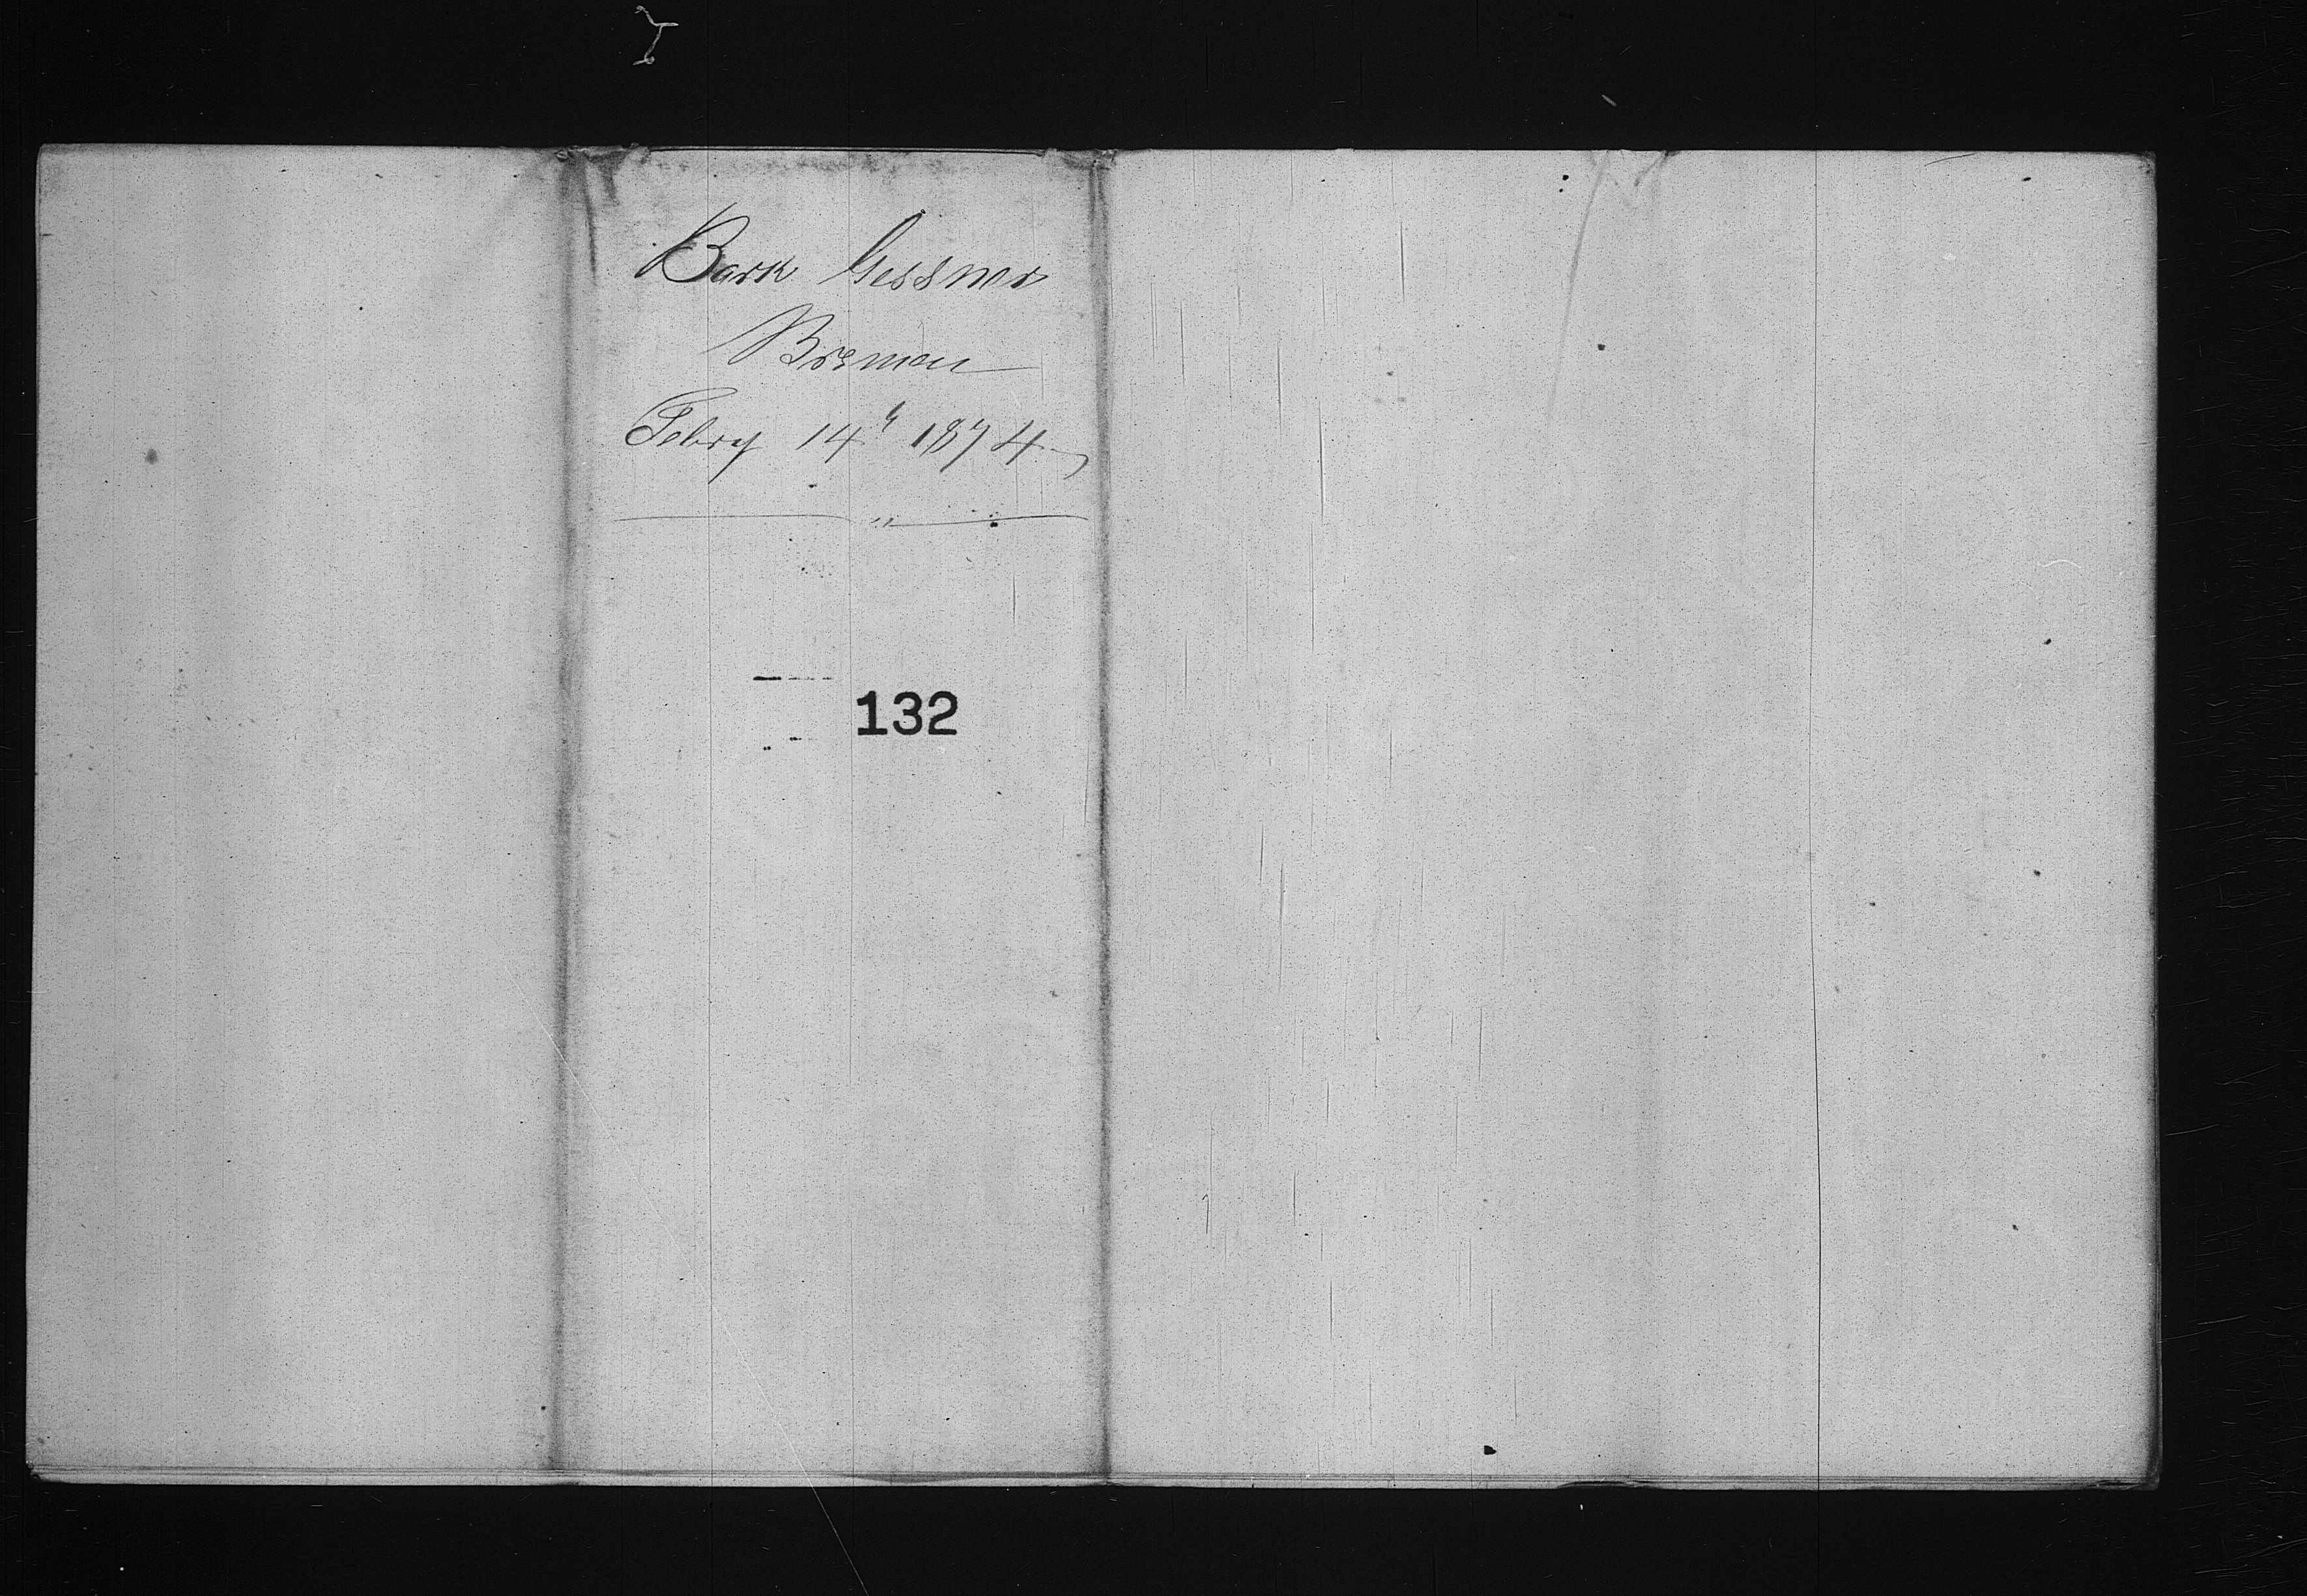 Bark Gessner
Bremen
Febry 14th 1874
132